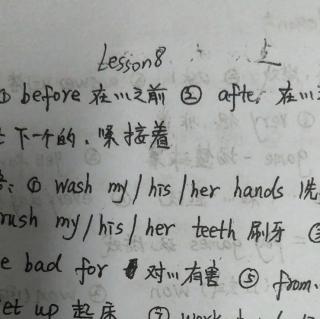 Lesson8
① before 在…之前 ② afte. 在…
下一个的, 紧接着
: ① wash my/his/her hands 洗
rush my/his/her teeth 刷牙 ③
e bad for 对…有害 ⑤ from.
et up 起床 ⑦ work